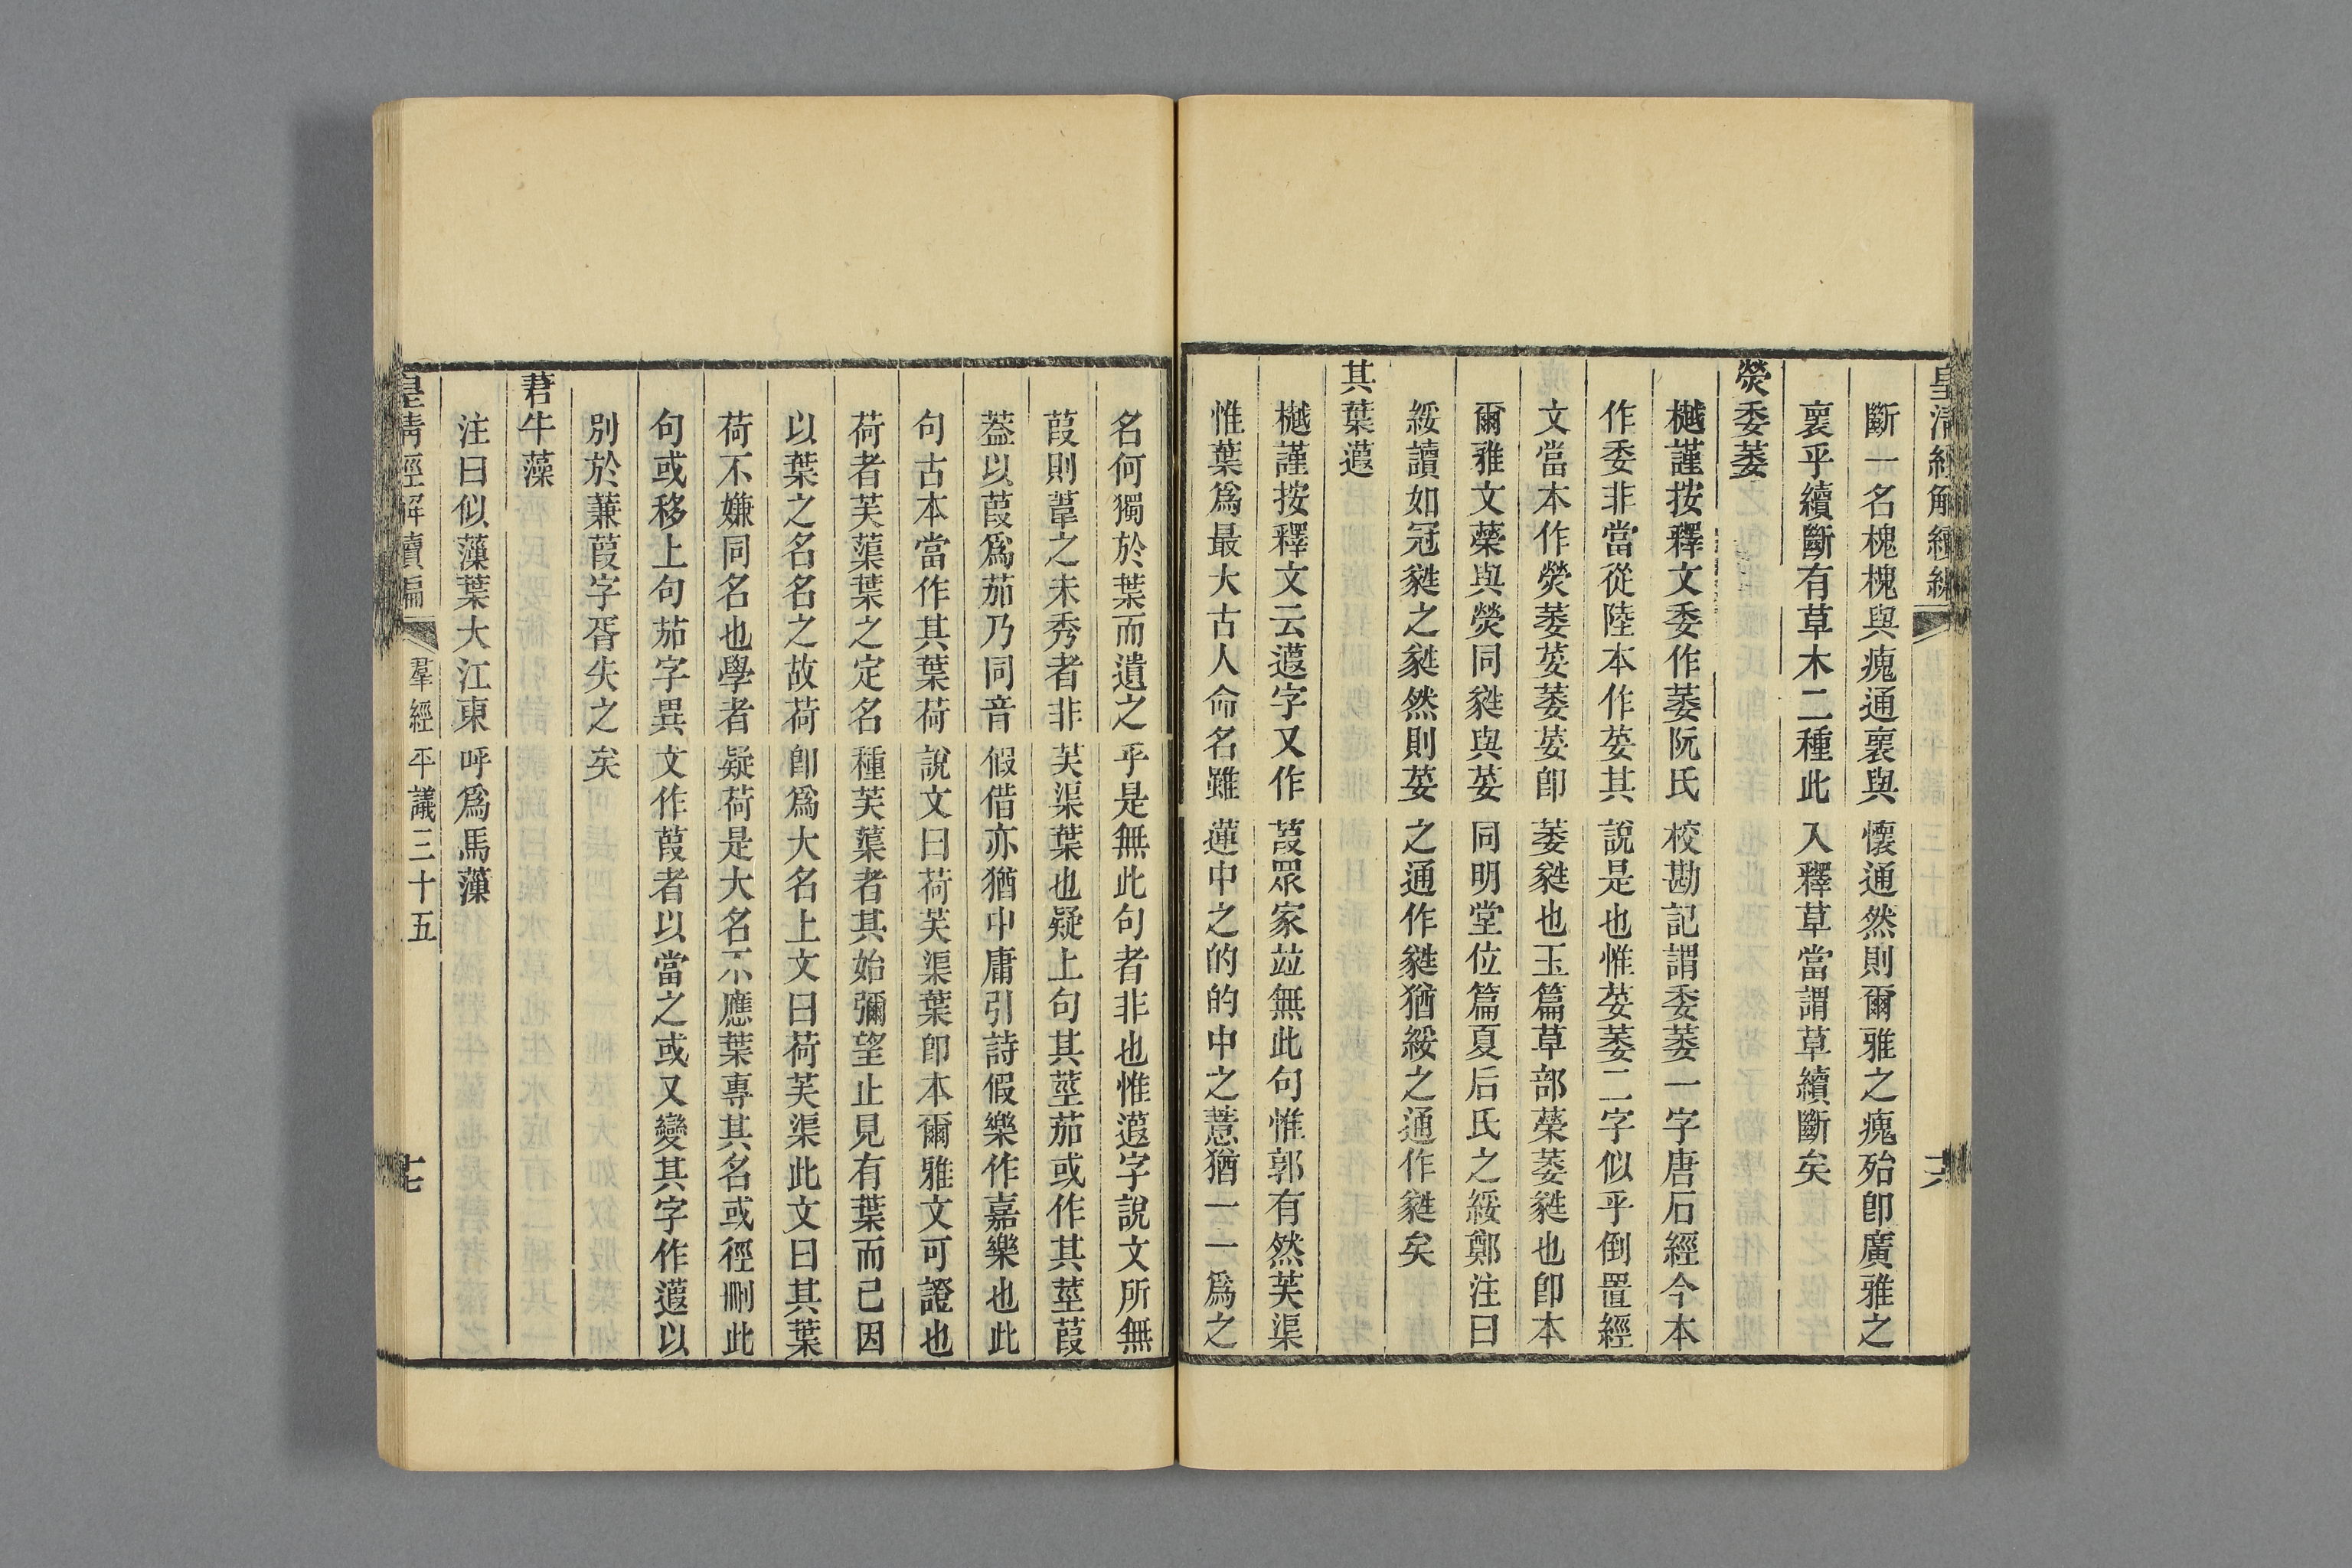 皇清經解續編
斷一名槐槐與瘣通褱與懷通然則爾雅之瘣殆卽廣雅之
褱乎續斷有草木二種此入釋草當謂草續斷矣
熒委萎
樾謹按釋文委作萎阮氏校勘記謂委萎一字唐石經今本
作委非當從陸本作荽其說是也惟荽萎二字似乎倒置經
文當本作熒萎荽萎荽卽萎㽔也玉篇草部蘃萎㽔也卽本
爾雅文蘃與熒同㽔與荽同明堂位篇夏后氏之綏鄭注曰
綏讀如冠㽔之㽔然則荽之通作㽔猶綏之通作㽔矣
其葉蕸
樾謹按釋文云蕸字又作葭眾家竝無此句惟郭有然芙渠
惟葉爲最大古人命名雖蓮中之的的中之薏猶一一爲之
名何獨於葉而遺之乎是無此句者非也惟蕸字說文所無
葭則葦之未秀者非芙渠葉也疑上句其莖茄或作其莖葭
葢以葭爲茄乃同音假借亦猶中庸引詩假樂作嘉樂也此
句古本當作其葉荷說文曰荷芙渠葉卽本爾雅文可證也
荷者芙蕖葉之定名種芙蕖者其始彌望止見有葉而已因
以葉之名名之故荷卽爲大名上文曰荷芙渠此文曰其葉
荷不嫌同名也學者疑荷是大名不應葉專其名或徑刪此
句或移上句茄字異文作葭者以當之或又變其字作蕸以
別於蒹葭字胥失之矣
莙牛藻
注曰似藻葉大江東呼爲馬藻
皇清經解續編
羣經平議三十五
十七